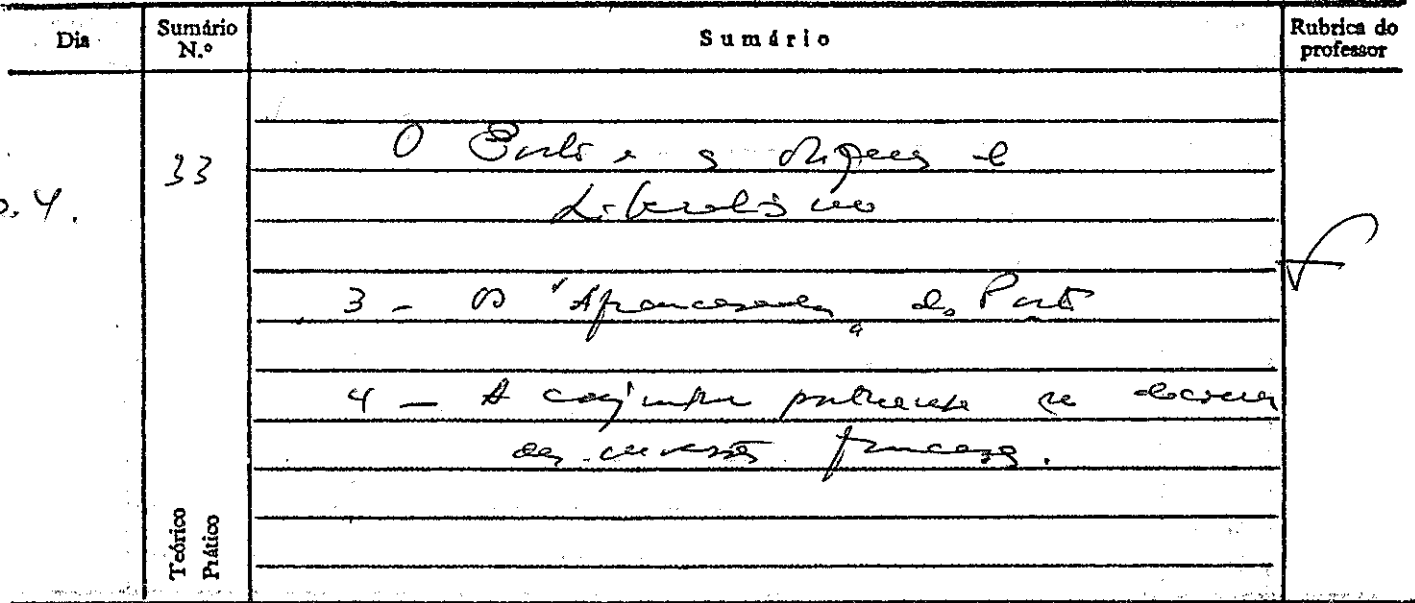 Dia
Sumário N.º
Sumário
Rubrica do professor
33
O Porto e as origens do
Liberalismo
3 - Os "Afrancesados" do Porto
4 - A conjuntura portuense no decorrer
das invasões francesas.
Teórico
Prático